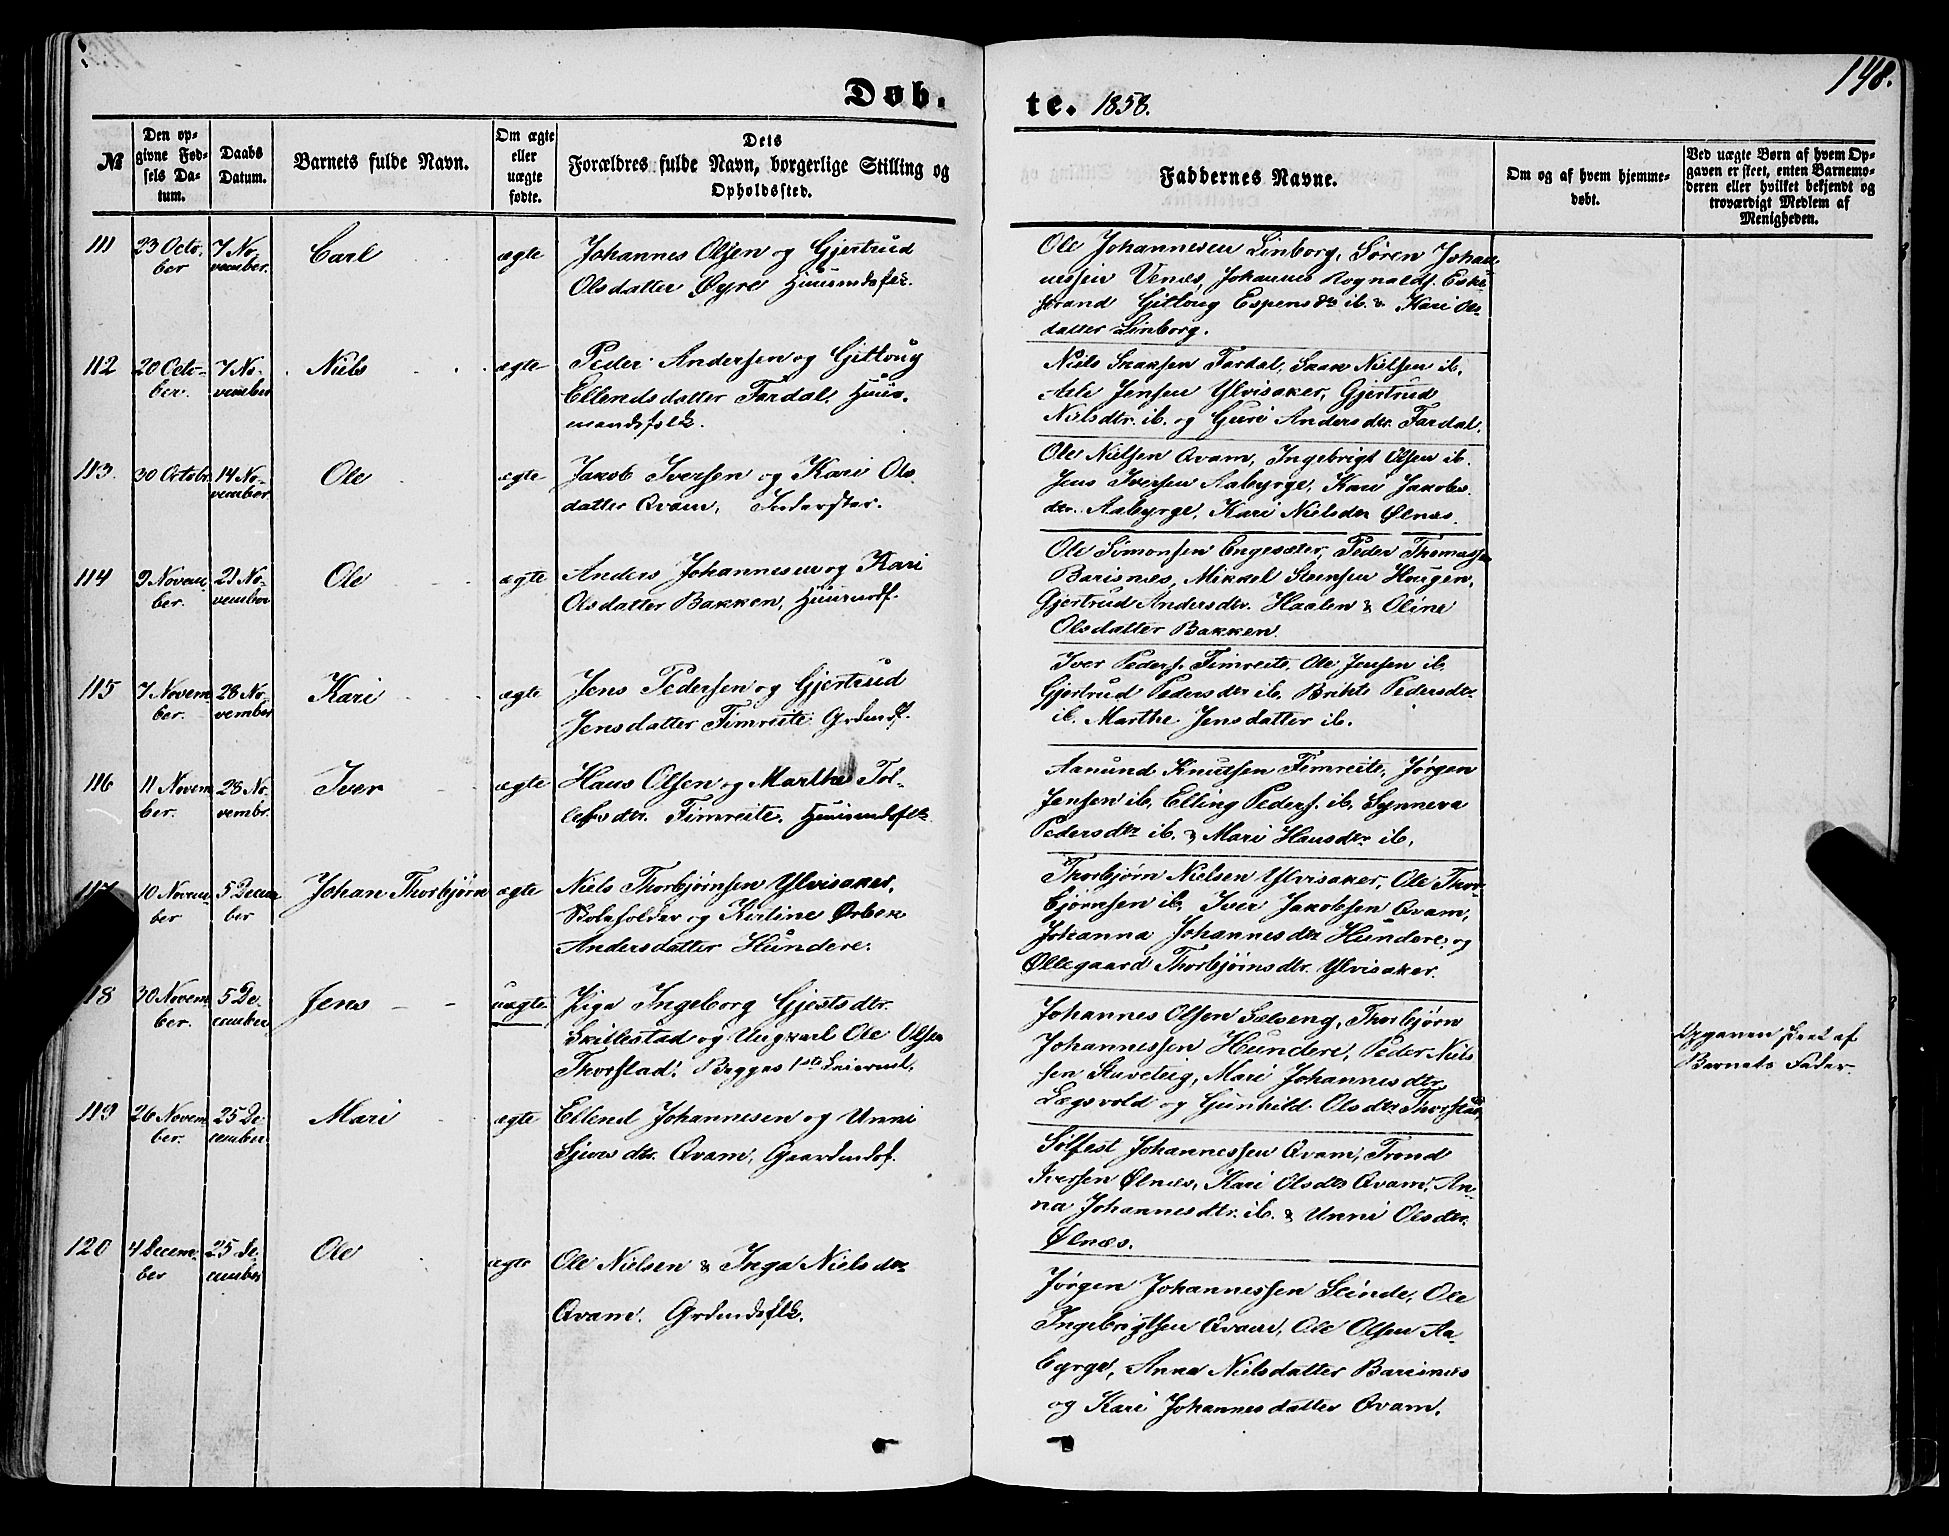 148.
Døb. te. 1858.
№
Den op-
givne Fød-
sels Da-
tum.
Daabs
Datum.
Barnets fulde Navn.
Om ægte
eller
uægte
fødte.
Dets
Forældres fulde Navn, borgerlige Stilling og
Opholdssted.
Faddernes Navne.
Om og af hvem hjemme-
døbt.
Ved uægte Børn af hvem Op-
gaven er skeet, enten Barnemo-
deren eller hvilket bekjendt og
troværdigt Medlem af
Menigheden.
111 23 Octo- 7 No- Carl ægte Johannes Olsen og Gjertrud
ber vember. Olsdatter Øyre Huusmdsflk.
Ole Johannesen Linborg, Søren Johan-
nessen Venæs, Johannes Rognalds. Eske-
strand Gitloug Espensdr ib. & Kari Ols-
datter Linborg.
112 20 Octo- 7 No- Niels ægte Peder Andersen og Gitloug
ber. vember Ellendsdatter Fardal. Huus-
mandsfolk.
Niels Knudsen Fardal, Nielsen ib.
Jensen Ylvisaker, Gjertrud
Nielsdtr. ib. og Guri Andersdtr. Fardal.
113. 30 Octobr 14 No- Ole ægte Jakob Iversen og Kari Ols-
vember. datter Qvam, Inderster.
Ole Nielsen Qvam, Ingebrigt Olsen ib.
Jens Iversen Aabyrge, Kari Jakobs-
dtr. Aabyrge, Kari Nielsdtr Ølnæs.
114 9 Novem- 21 No- Ole ægte Anders Johannesen og Kari
ber. vember Olsdatter Bakken, Huusmdf.
Ole Simonsen Engesæter, Peder Thomassen
Barisnæs, Mikkel Steensen Haugen,
Gjertrud Andersdtr. Haalen & Oline
Olsdatter Bakken.
115 7 Novem- 28 No- Kari ægte Jens Pedersen og Gjertrud
ber. vember Jensdatter Fimreite Grdmdf.
Iver Peders. Fimreite, Ole Jensen ib.
Gjertrud Pedersdtr ib. Brikte Pedersdtr
ib. Marthe Jensdatter ib.
116 11 Novem- 28 No- Iver ægte Hans Olsen og Marthe Tol-
ber. vembr. lefsdtr. Fimreite, Huusmdsflk.
Aamund Knutsen Fimreite, Jørgen
Jensen ib, Elling Peders. ib, Synneva
Pedersdtr ib. & Mari Hansdtr ib.
117 10 Novem- 5 Decem- Johan Thorbjørn ægte Niels Thorbjørnsen Ylvisaker,
ber ber Skoleholder og Karline Ørbek
Andersdatter Hundere.
Thorbjørn Nielsen Ylvisaker, Ole Thor-
bjørnsen ib, Iver Jakobsen Qvam,
Johanna Johannesdtr Hundere, og
Øllegaard Thorbjørnsdtr. Ylvisaker.
118 30 Novem- 5 De- Jens uægte Pige Ingeborg Gjestsdtr.
ber. cember Skillestad og Ungkarl Ole Olsen
Thorstad. Begges 1ste Leierml.
Johannes Olsen Sælseng, Thorbjørn
Johannessen Hundere, Peder Niel-
sen Stuveteig, Mari Johannesdtr
Lægsvold og Gunhild Olsdtr Thorstad.
Opgaven skeet af
Barnets Fader.
119 26 Novem- 25 De- Mari ægte Ellend Johannesen og Unni
ber. cember Sjursdtr. Qvam, Gaardmdsf.
Solfest Johannessen Qvam, Trond
Iversen Ølnæs, Kari Olsdtr Qvam, An-
na Johannesdtr. ib. & Unni Olsdtr.
Ølnæs.
120 4 Decem- 25 De- Ole ægte Ole Nielsen & Inga Nielsdtr
ber cember Qvam. Grdmdsflk.
Jørgen Johannessen Stinde, Ole
Ingebrigtsen Qvam, Ole Olsen Aa-
byrge, Anna Nielsdatter Barisnæs
og Kari Johannesdatter Qvam.